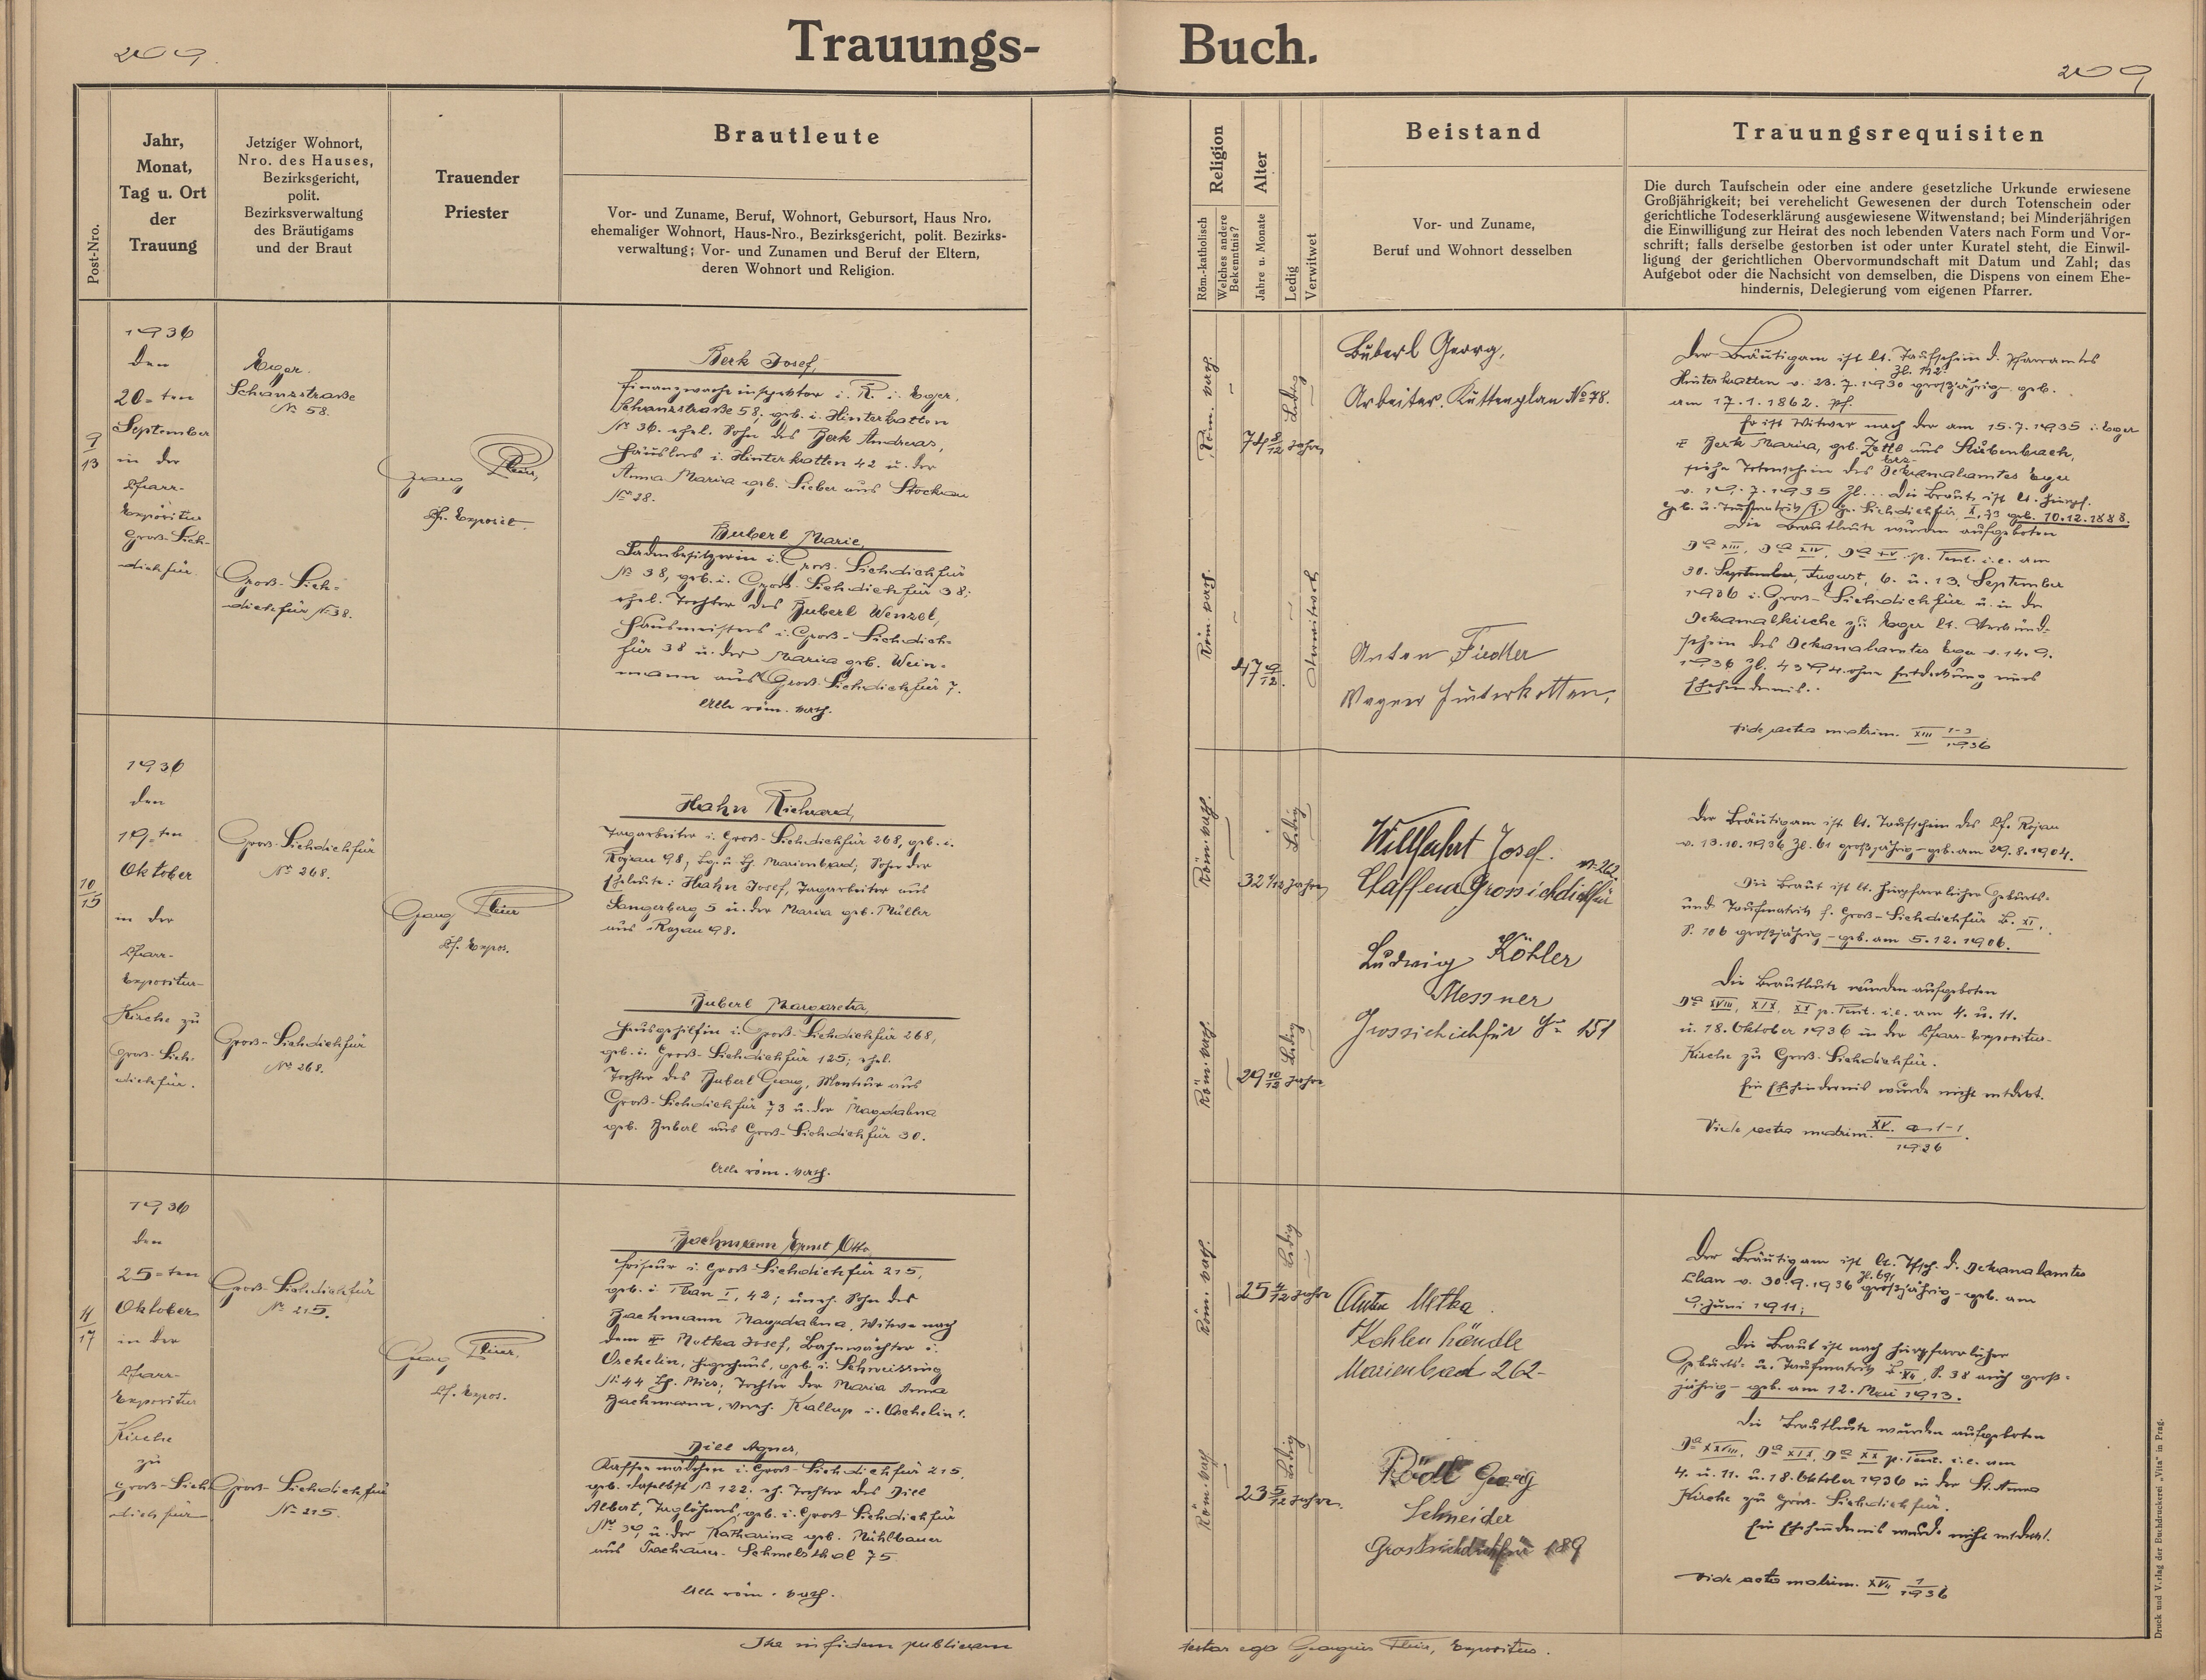 209.
Trauungs-
Buch.
209
Post-Nro.
Jahr,
Monat,
Tag u. Ort
der
Trauung
Jetziger Wohnort,
Nro. des Hauses,
Bezirksgericht,
polit.
Bezirksverwaltung
des Bräutigams
und der Braut
Trauender
Priester
Brautleute
Vor- und Zuname, Beruf, Wohnort, Gebursort, Haus Nro.
ehemaliger Wohnort, Haus-Nro., Bezirksgericht, polit. Bezirks-
verwaltung; Vor- und Zunamen und Beruf der Eltern,
deren Wohnort und Religion.
Religion
Röm.-katholisch
Welches andere
Bekenntnis?
Alter
Jahre u. Monate
Ledig
Verwitwet
Beistand
Vor- und Zuname,
Beruf und Wohnort desselben
Trauungsrequisiten
Die durch Taufschein oder eine andere gesetzliche Urkunde erwiesene
Großjährigkeit; bei verehelicht Gewesenen der durch Totenschein oder
gerichtliche Todeserklärung ausgewiesene Witwenstand; bei Minderjährigen
die Einwilligung zur Heirat des noch lebenden Vaters nach Form und Vor-
schrift; falls derselbe gestorben ist oder unter Kuratel steht, die Einwil-
ligung der gerichtlichen Obervormundschaft mit Datum und Zahl; das
Aufgebot oder die Nachsicht von demselben, die Dispens von einem Ehe-
hindernis, Delegierung vom eigenen Pfarrer.
9
13
1936
den
20-ten
September
in der
Pfarr-
Expositur
Groß-Sich-
dichfür
Eger.
Schanzstraße
No 58.
Groß-Sich-
dichfür No 38.
Georg
Pf. Exposit.
Berk Josef,
Finanzwachinspektor i. R. i. Eger,
Schanzstraße 58, geb. i. Hinterkotten
No 36. ehel. Sohn des Berk Andreas,
Häuslers i. Hinterkotten 42 u. der
Anna Maria geb. Sieber aus Stockau
No 28.
Buberl Marie,
Ladenbesitzerin i. Groß-Sichdichfür
No 38, geb. i. Groß-Sichdichfür 38;
ehel. Tochter des Buberl Wenzel,
Hausmeisters i. Groß-Sichdich-
für 38 u. der Maria geb. Wein-
mann aus Groß-Sichdichfür 7.
Alle röm. kath.
Röm. kath.
74 8/12 Jahre
Röm. kath.
47 9/12
Buberl Georg,
Arbeiter. Kuttenplan No 78.
Anton Fiedler
Wagner Hinterkotten,
Der Bräutigam ist lt. Taufschein d. Pfarramtes
Hinterkotten v. 23.7.1930 Zl. 112 großjährig- geb.
am 17.1.1862. Pf.
Er ist Witwer nach der am 15.7.1935 i. Eger
Berk Maria, geb. Zettl aus
siehe Totenschein des Dekanalamtes Eger
v. 19.7.1935 Zl... Die Braut ist lt. hierpf.
Geb. u. Taufmatrik f. Gr. Sichdichfür geb. 10.12.1888.
Die Brautleute wurden aufgeboten
Da XIII, Da XIV, Da XV p. Pent. i.e. am
30. September, August, 6. u. 13. September
1936 i. Groß-Sichdichfür u. in der
Dekanalkirche zu Eger lt. Verkünd-
schein des Dekanalamtes Eger v. 14.9.
1936 Zl. 4394 ohne Entdeckung eines
Ehehindernis.
Vide acta matrim. XIII 1-3/1936
10
15
1936
den
19-ten
Oktober
in der
Pfarr-
Expositur-
Kirche zu
Groß-Sich-
dichfür.
Groß-Sichdichfür
No 268.
Groß-Sichdichfür
No 268.
Georg
Pf. Expos.
Hahn Richard,
Tagarbeiter i. Groß-Sichdichfür 268, geb. i.
Rojau 98, Bz. u. Bh. Marienbad; Sohn der
Eheleute: Hahn Josef, Tagarbeiter aus
Sangerberg 5 u. der Maria geb. Müller
aus Rojau 98.
Buberl Margareta,
Hausgehilfin i. Groß-Sichdichfür 268,
geb. i. Groß-Sichdichfür 125; ehel.
Tochter des Buberl Georg, Monteur aus
Groß-Sichdichfür 73 u. der Magdalena
geb. Buberl aus Groß-Sichdichfür 30.
Alle röm. kath.
Röm. kath.
Ledig
32 1/12 Jahre
Röm. kath.
Ledig
29 10/12 Jahre
Willfahrt Josef.
Nr. 262
Grossichdichfür
Ludwig Köhler
Messner
Grossichichfür No 151
Der Bräutigam ist lt. Taufschein des Pf. Rojau
v. 13.10.1936 Zl. 61 großjährig - geb. am 29.8.1904.
Die Braut ist lt. hierpfarrlicher Geburts-
und Taufmatrik f. Groß-Sichdichfür B. XI,
S. 106 großjährig - geb. am 5.12.1906.
Die Brautleute wurden aufgeboten
Da XVIII, XIX, XX p. Pent. i.e. am 4. u. 11.
u. 18. Oktober 1936 in der Pfarr-Expositur-
Kirche zu Groß-Sichdichfür.
Ein Ehehindernis wurde nicht entdeckt.
Vide acta matrim. XV. a 1-1/1936
11
17
1936
den
25-ten
Oktober
in der
Pfarr-
Expositur
Kirche
zu
Groß-Sich
dichfür
Groß-Sichdichfür
No 215.
Groß-Sichdichfür
No 215.
Georg
Pf. Expos.
Bachmann Ernst Otto,
Friseur i. Groß-Sichdichfür 215,
geb. i. Plan I, 42; unehel. Sohn der
Bachmann Magdalena, Witwe nach
dem Motka Josef, Bahnwächter i.
Oschelin, Hegerhaus, geb. i. Schweissing
No 44 Bh. Mies; Tochter der Maria Anna
Bachmann, verehl. Kallup i. Oschelin 1.
Dill Agnes,
Kaffeemädchen i. Groß-Sichdichfür 215,
geb. daselbst No 122. eh. Tochter des Dill
Albert, Taglöhners, geb. i. Groß-Sichdichfür
No 39, u. der Katharina geb. Mühlbauer
aus Tachauer-Schmelzthal 75
Alle röm. kath.
Röm. kath.
Ledig
25 4/12 Jahre
Röm. kath.
Ledig
23 5/12 Jahre
Anton
Kohlenhändler
Marienbad 262-
Rödl Georg
Schneider
Grossichdichfür 189
Der Bräutigam ist lt. Tfsch. d. Dekanalamtes
Plan v. 30.9.1936 Zl. 691 großjährig - geb. am
9. Juni 1911;
Die Braut ist nach hierpfarrlicher
Geburts- u. Taufmatrik B. XII, S. 38 auch groß-
jährig - geb. am 12. Mai 1913.
Die Brautleute wurden aufgeboten
Da XVIII, Da XIX, Da XX p. Pent. i.e. am
4. u. 11. u. 18. Oktober 1936 in der St. Anna
Kirche zu Groß-Sichdichfür.
Ein Ehehindernis wurde nicht entdeckt.
Vide acta matrim. XVII 1/1936
Ita in fidem publicam
testor ego Georgius, Expositus.
Druck und Verlag der Buchdruckerei „Vita" in Prag.